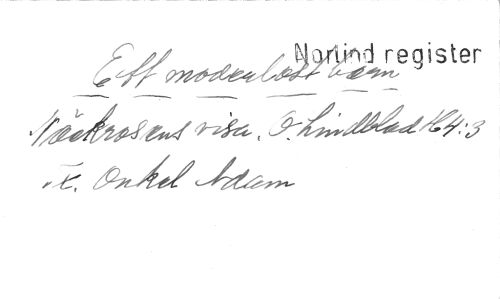 Norlind register
Ett moderlöst barn
Näckrosens visa. O. Lindblad H 4:3
x. Onkel Adam